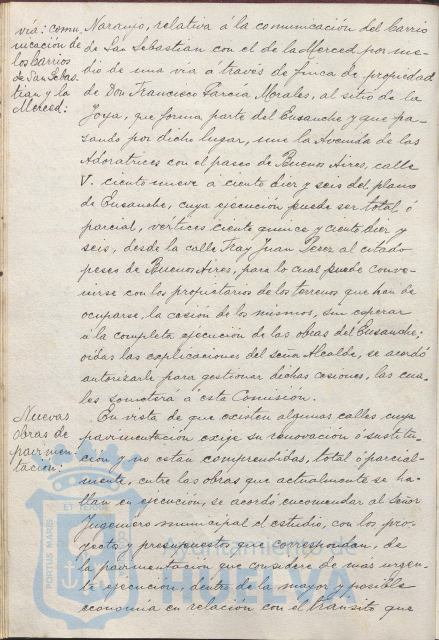 vía: comu-
nicación de
los barrios
de San Sebas-
tian y la
Merced:
Naranjo, relativa á la comunicación del barrio
de San Sebastian con el de la Merced por me-
dio de una via á través de finca de propiedad
de Don Francisco García Morales, al sitio de la
Joya, que forma parte del Ensanche y que pa-
sando por dicho lugar, une la Avenida de las
Adoratrices con el paseo de Buenos Aires, calle
V. ciento nueve á ciento diez y seis del plano
de Ensanche, cuya ejecución puede ser total ó
parcial, vértices ciento quince y ciento diez y
seis, desde la calle Fray Juan Perez al citado
paseo de Buenos Aires, para lo cual puede conve-
nirse con los propietarios de los terrenos que han de
ocuparse, la cesión de los mismos, sin esperar
á la completa ejecución de las obras del Ensanche;
oidas las explicaciones del señor Alcalde, se acordó
autorizarle para gestionar dichas cesiones, las cua-
les someterá á esta Comisión.
Nuevas
obras de
pavimen-
tación:
En vista de que existen algunas calles cuya
pavimentación exije su renovación ó sustitu-
ción y no están comprendidas, total ó parcial-
mente, entre las obras que actualmente se ha-
llan en ejecución, se acordó encomendar al Señor
Ingeniero municipal el estudio, con los pro-
yectos y presupuestos que correspondan, de
la pavimentación que considere de más urgen-
te ejecución, dentro de la mayor y posible
economia en relación con el tránsito que
PORTUS MARIS ET TERRÆ
Ayuntamiento de
HUELVA